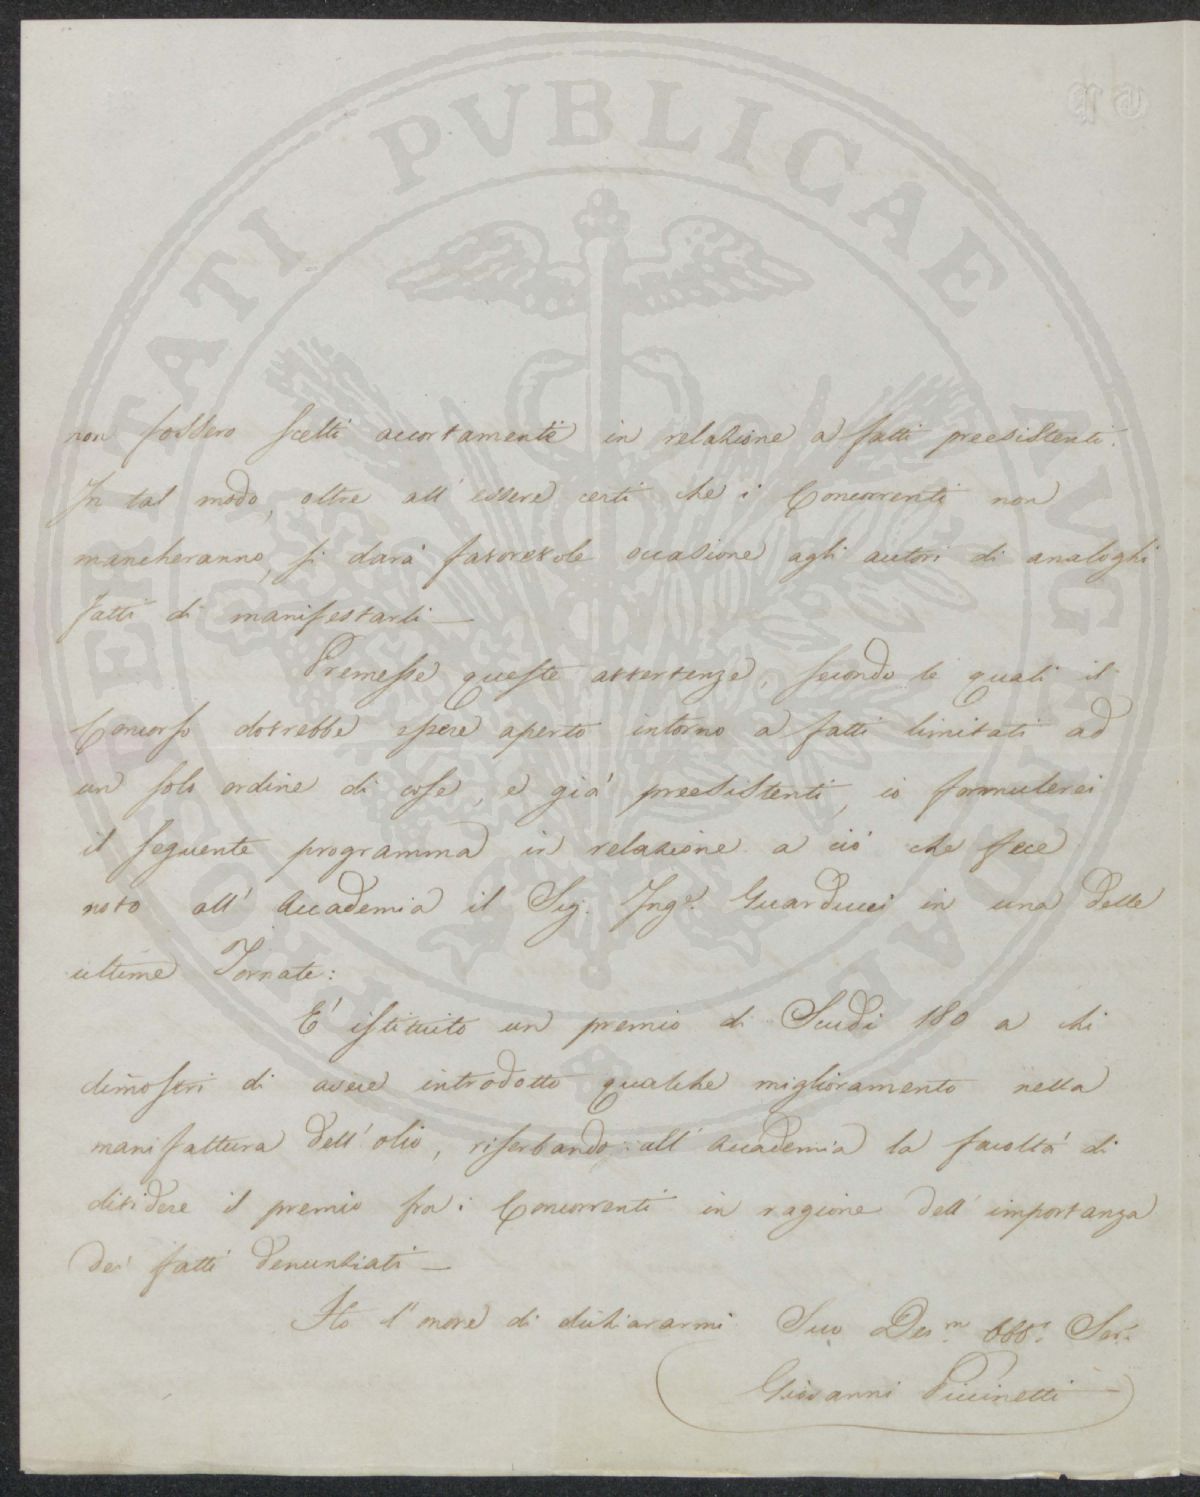 PROSPERITATI PVBLICAE AVGENDAE
non fossero scelti accortamente in relazione a fatti preesistenti.
In tal modo, oltre all' essere certi che i Concorrenti non
mancheranno, si darà favorevole occasione agli autori di analoghi
fatti di manifestarli —
Premesse queste avvertenze, secondo le quali il
Concorso dovrebbe essere aperto intorno a fatti limitati ad
un solo ordine di cose, e già preesistenti, io formulerei
il seguente programma in relazione a ciò che fece
noto all' Accademia il Sig. Ing.e Guarducci in una delle
ultime Tornate:
E' istituito un premio di Scudi 180 a chi
dimostri di avere introdotto qualche miglioramento nella
manifattura dell' olio, riserbando all' Accademia la facoltà di
dividere il premio fra i Concorrenti in ragione dell' importanza
dei fatti denunziati —
Ho l' onore di dichiararmi Suo Dev.m Obb.o Ser.
Giovanni Piccinetti